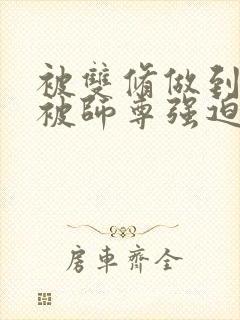 被雙脩做到
被師尊强迫
房車齊全